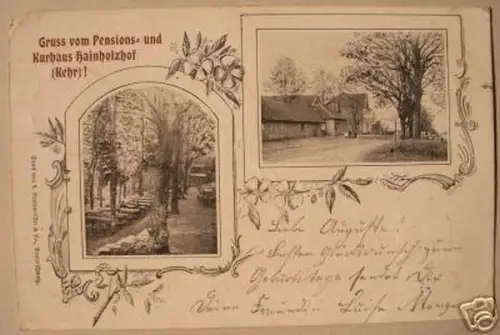 Gruss vom Pensions- und
Kurhaus Hainholzhof
(Kehr)!
Liebe Auguste!
Besten Glückwunsch zum
Geburtstage sendet Dir
Deine Freundin Luise
ebY